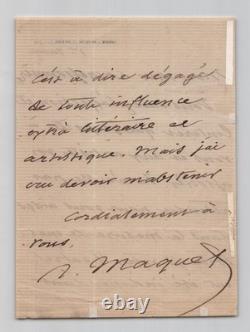 c'est à dire dégagé
de toute influence
extra littéraire et
artistique. Mais j'ai
cru devoir m'abstenir
cordialement à
vous,
A. Maquet